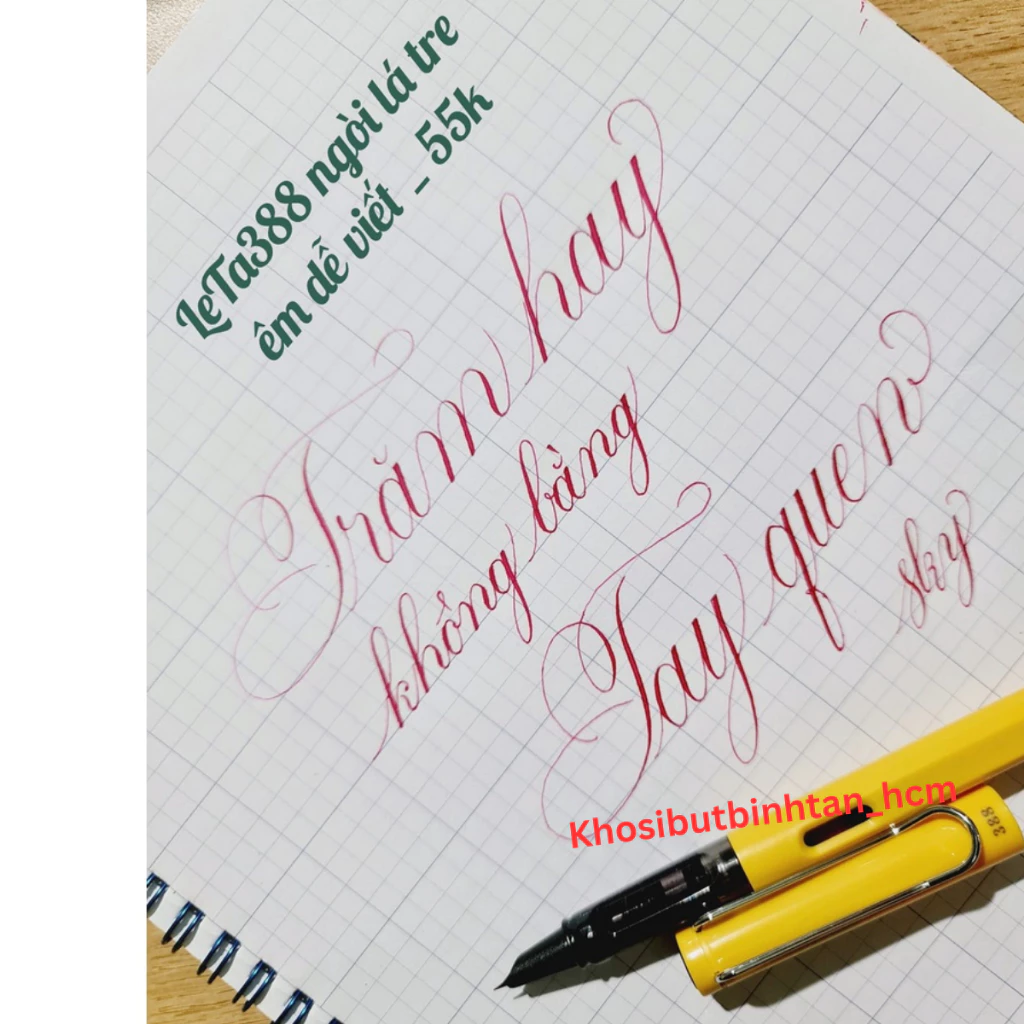 LeTa388 ngòi lá tre
êm dễ viết _ 55k
Trăm hay
không bằng
Tay quen
sky
Khosibutbinhtan_hcm
388